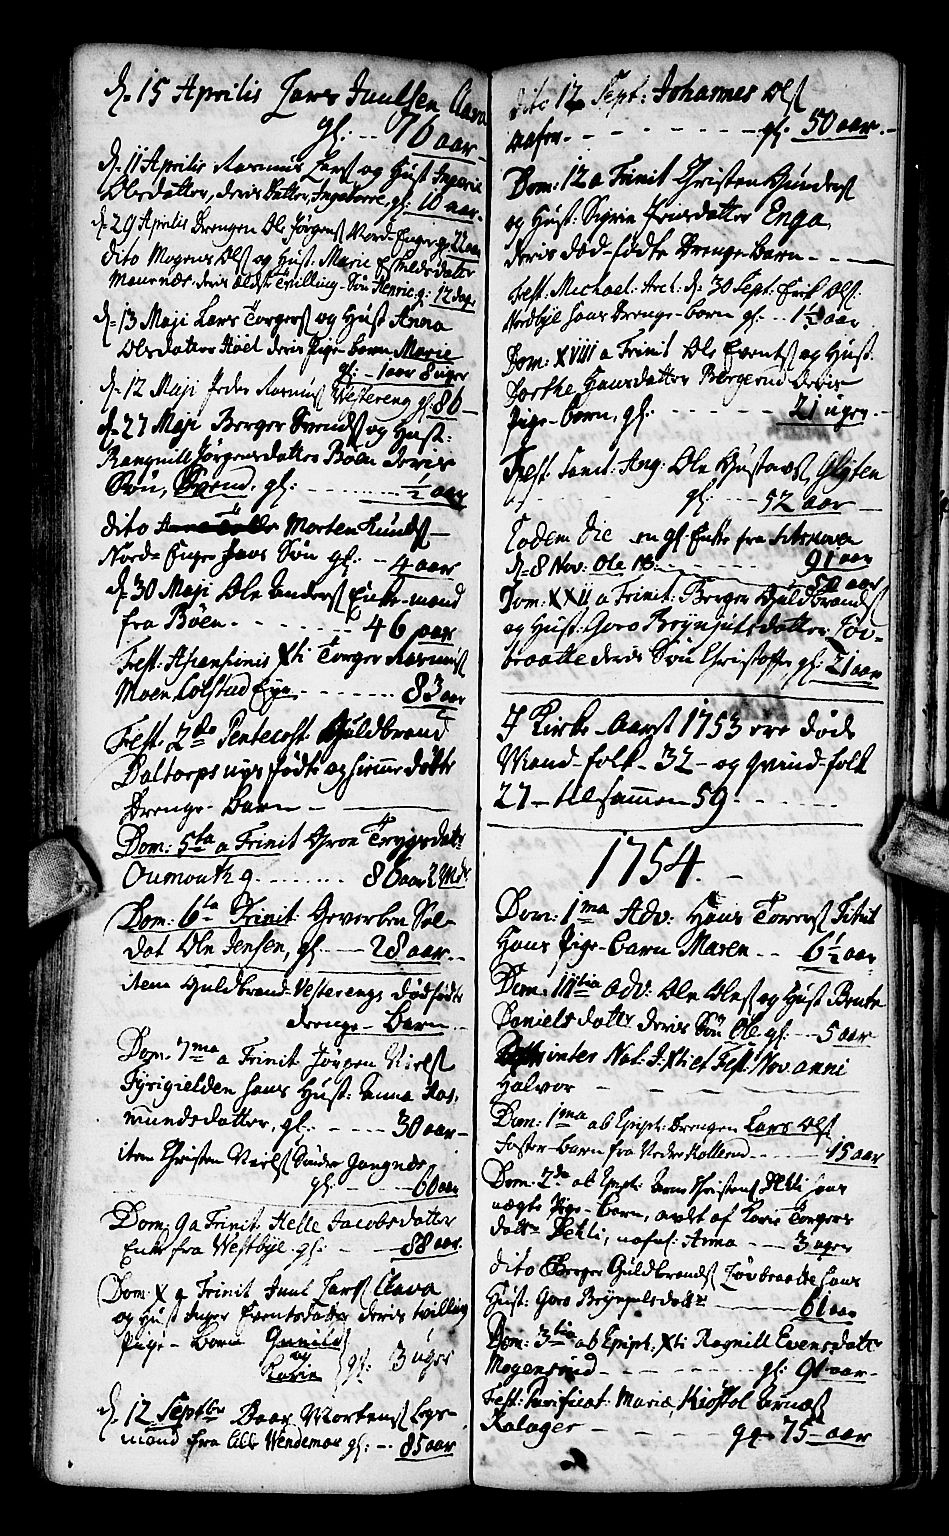 d. 15 Aprilis Lars Juulsen Clava
gl: .. 76 aar
d. 11 Aprilis Rasmus Lars: og Hust Ingerie
Olsdatter, deris datter, Ingeborre, gl: 10 aar.
d. 29 Aprilis Drengen Ole Jørgens: Nord-Enger gl 22 aar
dito Mogens Ols: og Hust: Marie Eskildsdatter
Mauenæs deris ældste Tvilling-Søn Henric, g: 12 dage
d. 13 Maji Lars Torgers: og Hust Anna
Olsdatter Høel deris Pige-barn Marie
gl: - 1 aar 8 uger
d. 12 Maji Peder Rasmus: Westereng gl: 80 -
d. 27 Maji Berger Svends: og Hust:
Ranguill Jørgensdatter Böen deris
Søn, Svend, gl: ........ ½ aar
dito Morten Knuds:
Nord-Enger hans Søn gl: -- 4 aar
d. 30 Maji Ole Anders: Enke-mand
fra Böen. - - - - 46 aar
Fest: Ascensionis Xti Torger Rasmus:
Moen Colstad Eye. - - - - 83 aar
Fest: 2de Pentecost Guldbrand
Daltorps nys fødte og hiemme døbte
Drenge-barn -
Dom: 5ta a Trinit Gron Trygsdatr
Oumonth g. ....... 86 aar 2 Mdr
Dom: 6ta Trinit: Gevorben Sol-
dat Ole Jensen, gl: --- 28 aar.
item Guldbrand Vesterengs dødfødte
drenge-barn.
Dom: 7ma a Trinit Jörgen Niels:
Fyrigielden hans Hust: Anna Ras-
mundsdatter, gl: - - - - 30 aar -
item Christen Niels: Sönder Gangnæs
gl: - - - - 60 aar
Dom: 9 a Trinit Helle Jacobsdatter
Enke fra Westbye. gl: - - - 88 aar.
Dom: X a Trinit Juul Lars: Clava
og Hust Inger Eventsdatter deris tvilling
Pige-børn Gunild
og gl: 3 uger
Karin
d. 12 Septbr Baar Mortens: Legs-
mand fra lille Wendemoe gl: -- 85 aar
dito 12 Sept: Johannes Ols:
Aasen. - - - - - - gl: 50 aar. -
Dom: 12 a Trinit Christen Gunders:
og Hust: Sigrin Friisdatter Enga,
deris død-fødte Drenge-Barn - - -
Fest: Michael: Arch: d. 30 Sept: Erik Ols:
Nordbye hans Drenge-born gl: .. 1½ aar
Dom: XVIII a Trinit Ole Events: og Hust:
Dorthe Hansdatter Bergerud deris
Pige-barn, gl: - - - - - 21 uger. -
Fest: Sanct: Ang: Ole Gustavs: Glosten
gl: - - - 52 aar -
Eodem die en gl Enke fra Sitskoven
91 aar
d. 8 Nov: Ole 50 aar
Dom: XXII a Trinit: Berger Guldbrands:
og Hust: Goro Brynjulsdatter, Løv-
braatte deris Søn Christoffer, gl: 21 aar
I Kirke-Aaret 1753 ere døde
Mand-folk - 32 - og Qvind-folk
27 - tilsammen 59. - - - -
1754. -
Dom: 1ma Adv: Hans Torers: Fituit
Hans Pige-barn Maren .. 6½ aar
Dom: IItia Adv: Ole Ols: og Hust Bente
Danielsdatter deris Søn Ole gl: -- 5 aar
inter Nat: J: Xti et Fest: Nov: anni
Halvor - - - - -
Dom: 1ma ab Epiph: Drengen Lars Ols:
foster-barn fra Nedre Kollerud - - - - 15 aar
Dom: 2da ab Epiph: Arne Christens: Dehli hans
uægte Pige-barn, avlet af Karie Torgers
dattr Dehli, nafnl: Anna - - - 3 uger
dito Berger Guldbrands: Løvbraatte hans
Hust: Goro Bryngelsdatter - - - - 61 aar
Dom: 3tia ab Epiph: Xti Ragnill Evensdattr
Mogensrud - - - - - - gl: 91 aar -
Fest: Purificat: Mariæ, Kiøstol Arnes:
Kalager - - - - - - gl: 75 - aar